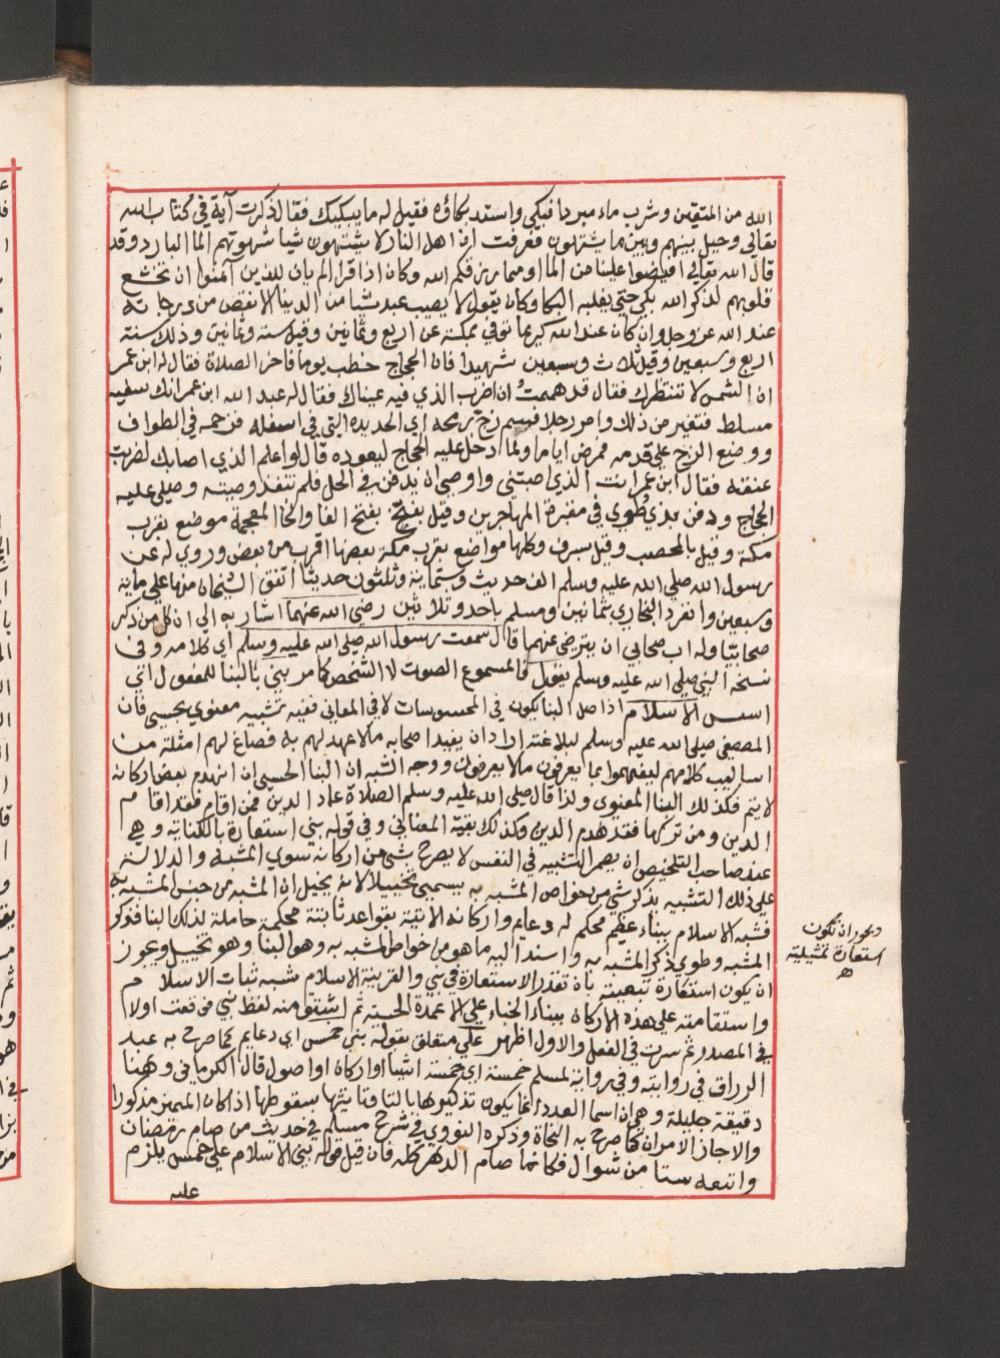 الله من المتقين وشرب ماء مبردا فبكى واستد بكاؤه فقيل له ما يبكيك فقال ذكرت آية في كتاب الله
تعالى وحيل بينهم وبين ما يشتهون فعرفت ان اهل النار لا يشتهون شيا شهوتهم الما البارد وقد
قال الله تعالى افيضوا علينا من الما او مما رزقكم الله وكان اذا قرا الم يان للذين آمنوا ان تخشع
قلوبهم لذكر الله بكى حتى يغلبه البكا وكان يقول لا يصيب عبد شيا من الدنيا الا نقص من درجاته
عند الله عز وجل وان كان عند الله كريما توفي بمكة عن اربع وثمانين وقيل ستة وثمانين وذلك سنة
اربع وسبعين وقيل ثلاث وسبعين شهيدا فان الحجاج خطب يوما فاخر الصلاة فقال له ابن عمر
ان الشمس لا تنتظرك فقال قد هممت ان اضرب الذي فيه عيناك فقال له عبد الله ابن عمر انك سفيه
مسلط فتغير من ذلك وامر رجلا فسم زج رمحه اي الحديدة التي في اسفله فزحمه في الطواف
ووضع الزج على قدمه فمرض اياما ولما دخل عليه الحجاج ليعوده قال لو اعلم الذي اصابك لضربت
عنقه فقال ابن عمر انت الذي اصبتني واوصى ان يدفن في الحل فلم تنفذ وصيته وصلى عليه
الحجاج ودفن بذي طوى في مقبرة المهاجرين وقيل بفخ بفتح الفا والخا المعجمة موضع بقرب
مكة وقيل بالمحصب وقيل بسرف وكلها مواضع بقرب مكة بعضها اقرب من بعض وروي له عن
رسول الله صلى الله عليه وسلم الف حديث وستماية وثلثون حديثا اتفق الشيخان منها على ماية
وسبعين وانفرد البخاري بثمانين ومسلم باحد وثلاثين رضي الله عنهما اشار به الى ان كل من ذكر
صحابيا وله اب صحابي ان يترضى عنهما قال سمعت رسول الله صلى الله عليه وسلم اي كلامه وفي
نسخة النبي صلى الله عليه وسلم يقول فالمسموع الصوت لا الشخص كما مر بني بالبنا للمفعول اي
اسس الاسلام اذ اصل البنا يكون في المحسوسات لا في المعاني ففيه تشبيه معنوي بحسي فان
المصطفى صلى الله عليه وسلم لبلاغته اراد ان يفيد اصحابه مالا عهد لهم به فصاغ لهم امثلة من
اساليب كلامهم ليفهموا بما يعرفون مالا يعرفون ووجه الشبه ان البنا الحسي ان انهدم بعض اركانه
لا يتم فكذلك البنا المعنوي ولذا قال صلى الله عليه وسلم الصلاة عماد الدين فمن اقام فقد اقام م
الدين ومن تركها فقد هدم الدين وكذلك بقية المعاني وفي قوله بني استعارة بالكناية وهي
عند صاحب التلخيص ان يضمر التشبيه في النفس لا يصرح بشي من اركانه سوى المشبه والدلالة
على ذلك التشبيه بذكر شي من خواص المشبه به يسمى تخييلا لانه يخيل ان المشبه من جنس المشبه به
فشبه الاسلام ببناء عظيم محكم له دعايم واركانه الاتية بقواعد ثابتة محكمة حاملة لذلك البنا فذكر
المشبه وطوى ذكر المشبه به واسند اليه ما هو من خواص المشبه به وهو البنا وهو تخييل ويجوز
ان يكون استعارة تبعية بان تقدر الاستعارة في بني والقرينة الاسلام شبه ثبات الاسلام م
واستقامته على هذه الاركان ببناء الخباء على الاعمدة الخمسة ثم اشتق منه لفظ بني فوقعت اولا
في المصدر ثم سرت في الفعل والاول اظهر على متعلق بقوله بني خمس اي دعايم كما صرح به عبد
الرزاق في روايته وفي رواية لمسلم خمسة اي خمسة اشيا او اركان او اصول قال الكرماني وهنا
دقيقة جليلة وهي ان اسما العدد انما يكون تذكيرها بالتا وتانيثها بسقوطها اذا كان المميز مذكورا
والا جاز الامران كما صرح به النحاة وذكره النووي في شرح مسلم في حديث من صام رمضان
واتبعه ستا من شوال فكانما صام الدهر كله فان قيل قوله بني الاسلام على خمس يلزم
عليه
ويجوز ان تكون
استعارة تمثيلية